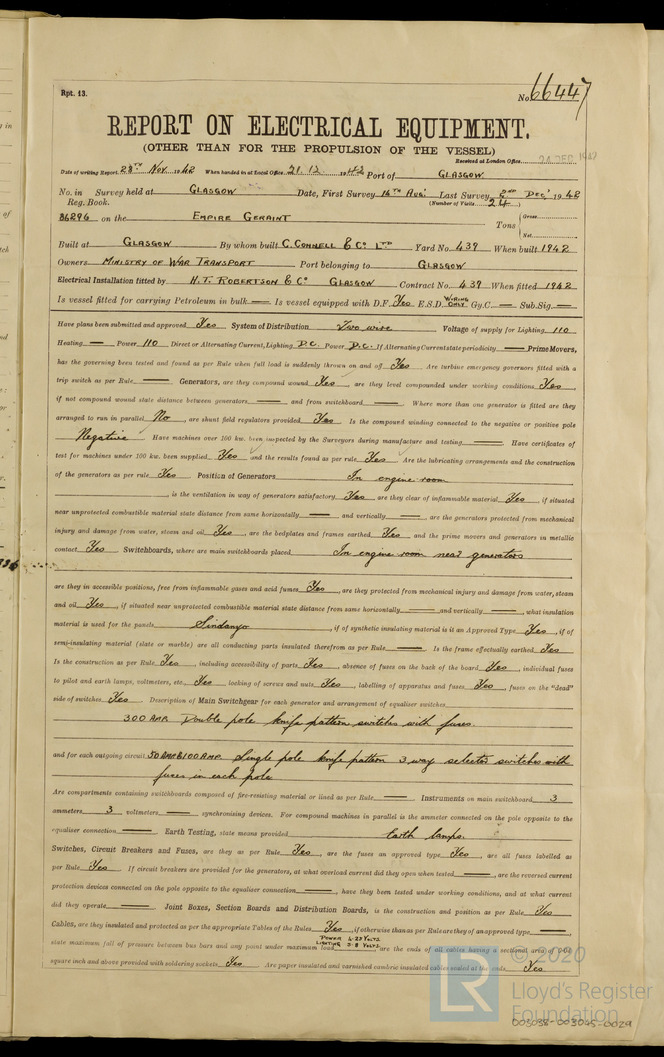 Rpt. 13.
No. 66447
REPORT ON ELECTRICAL EQUIPMENT.
(OTHER THAN FOR THE PROPULSION OF THE VESSEL)
Received at London Office
Date of writing Report 28TH Nov. 1942 When handed in at Local Office 21.12.1942 Port of GLASGOW.
No. in Survey held at GLASGOW Date, First Survey 14TH AUG. Last Survey 2ND DEC. 1942
Reg. Book. (Number of Visits 24)
36296 on the EMPIRE GERAINT Tons { Gross
Net
Built at GLASGOW By whom built C. CONNELL & Co LTD Yard No. 439 When built 1942
Owners MINISTRY OF WAR TRANSPORT Port belonging to GLASGOW
Electrical Installation fitted by H.T. ROBERTSON & Co GLASGOW Contract No. 439 When fitted 1942
Is vessel fitted for carrying Petroleum in bulk — Is vessel equipped with D.F. Yes E.S.D. WIRING ONLY Gy.C. — Sub.Sig. —
Have plans been submitted and approved Yes System of Distribution Two wire Voltage of supply for Lighting 110
Heating — Power 110 Direct or Alternating Current, Lighting D.C. Power D.C. If Alternating Current state periodicity — Prime Movers,
has the governing been tested and found as per Rule when full load is suddenly thrown on and off Yes. Are turbine emergency governors fitted with a
trip switch as per Rule —. Generators, are they compound wound Yes, are they level compounded under working conditions Yes,
if not compound wound state distance between generators — and from switchboard —. Where more than one generator is fitted are they
arranged to run in parallel No, are shunt field regulators provided Yes. Is the compound winding connected to the negative or positive pole
Negative. Have machines over 100 kw. been inspected by the Surveyors during manufacture and testing —. Have certificates of
test for machines under 100 kw. been supplied Yes and the results found as per rule Yes. Are the lubricating arrangements and the construction
of the generators as per rule Yes. Position of Generators In engine room
, is the ventilation in way of generators satisfactory Yes, are they clear of inflammable material Yes, if situated
near unprotected combustible material state distance from same horizontally — and vertically —, are the generators protected from mechanical
injury and damage from water, steam and oil Yes, are the bedplates and frames earthed Yes and the prime movers and generators in metallic
contact Yes. Switchboards, where are main switchboards placed In engine room near generators
are they in accessible positions, free from inflammable gases and acid fumes Yes, are they protected from mechanical injury and damage from water, steam
and oil Yes, if situated near unprotected combustible material state distance from same horizontally — and vertically —, what insulation
material is used for the panels Sindanyo, if of synthetic insulating material is it an Approved Type Yes, if of
semi-insulating material (slate or marble) are all conducting parts insulated therefrom as per Rule —. Is the frame effectually earthed Yes
Is the construction as per Rule Yes, including accessibility of parts Yes, absence of fuses on the back of the board Yes, individual fuses
to pilot and earth lamps, voltmeters, etc. Yes locking of screws and nuts Yes, labelling of apparatus and fuses Yes, fuses on the "dead"
side of switches Yes. Description of Main Switchgear for each generator and arrangement of equaliser switches
300 AMP. Double pole knife pattern switches with fuses.
and for each outgoing circuit 50 AMP & 100 AMP. Single pole knife pattern 3 way selector switches with
fuses in each pole
Are compartments containing switchboards composed of fire-resisting material or lined as per Rule —. Instruments on main switchboard 3
ammeters 3 voltmeters — synchronising devices. For compound machines in parallel is the ammeter connected on the pole opposite to the
equaliser connection —. Earth Testing, state means provided Earth lamps.
Switches, Circuit Breakers and Fuses, are they as per Rule Yes, are the fuses an approved type Yes, are all fuses labelled as
per Rule Yes. If circuit breakers are provided for the generators, at what overload current did they open when tested —, are the reversed current
protection devices connected on the pole opposite to the equaliser connection —, have they been tested under working conditions, and at what current
did they operate —. Joint Boxes, Section Boards and Distribution Boards, is the construction and position as per Rule Yes
Cables, are they insulated and protected as per the appropriate Tables of the Rules Yes, if otherwise than as per Rule are they of an approved type —,
state maximum fall of pressure between bus bars and any point under maximum load POWER 4.25 VOLTS LIGHTING 2.8 VOLTS, are the ends of all cables having a sectional area of
square inch and above provided with soldering sockets Yes. Are paper insulated and varnished cambric insulated cables sealed at the ends Yes
© 2020
LR
Lloyd's Register
Foundation
003038-003045-0029